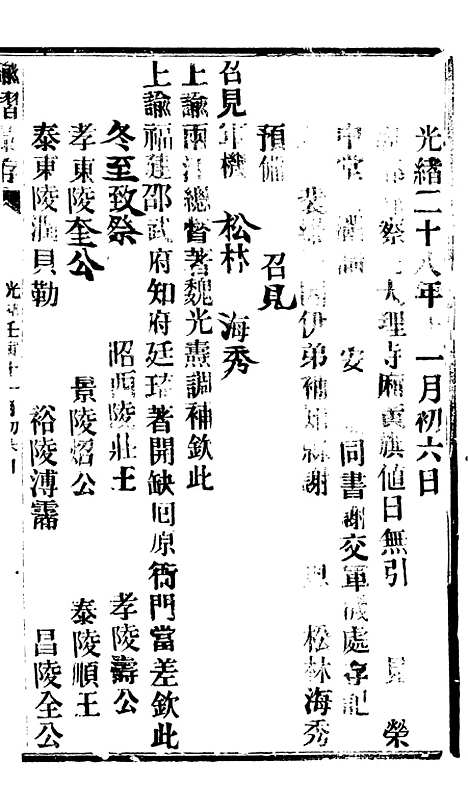 光緒二十八年十一月初六日
察 大理寺廂黃旗值日無引 見 榮
中堂 安 同書謝交軍機處存記
裴 因伊弟補 謝 恩 松林海秀
預備 召見
召見軍機 松林 海秀
上諭兩江總督著魏光燾調補欽此
上諭福建邵武府知府廷瑞著開缺囘原衙門當差欽此
冬至致祭 昭西陵莊王 孝陵壽公
孝東陵奎公 景陵熠公 泰陵順王
泰東陵潤貝勒 裕陵溥霱 昌陵全公
諭習 存 光緒壬寅十一月初六日